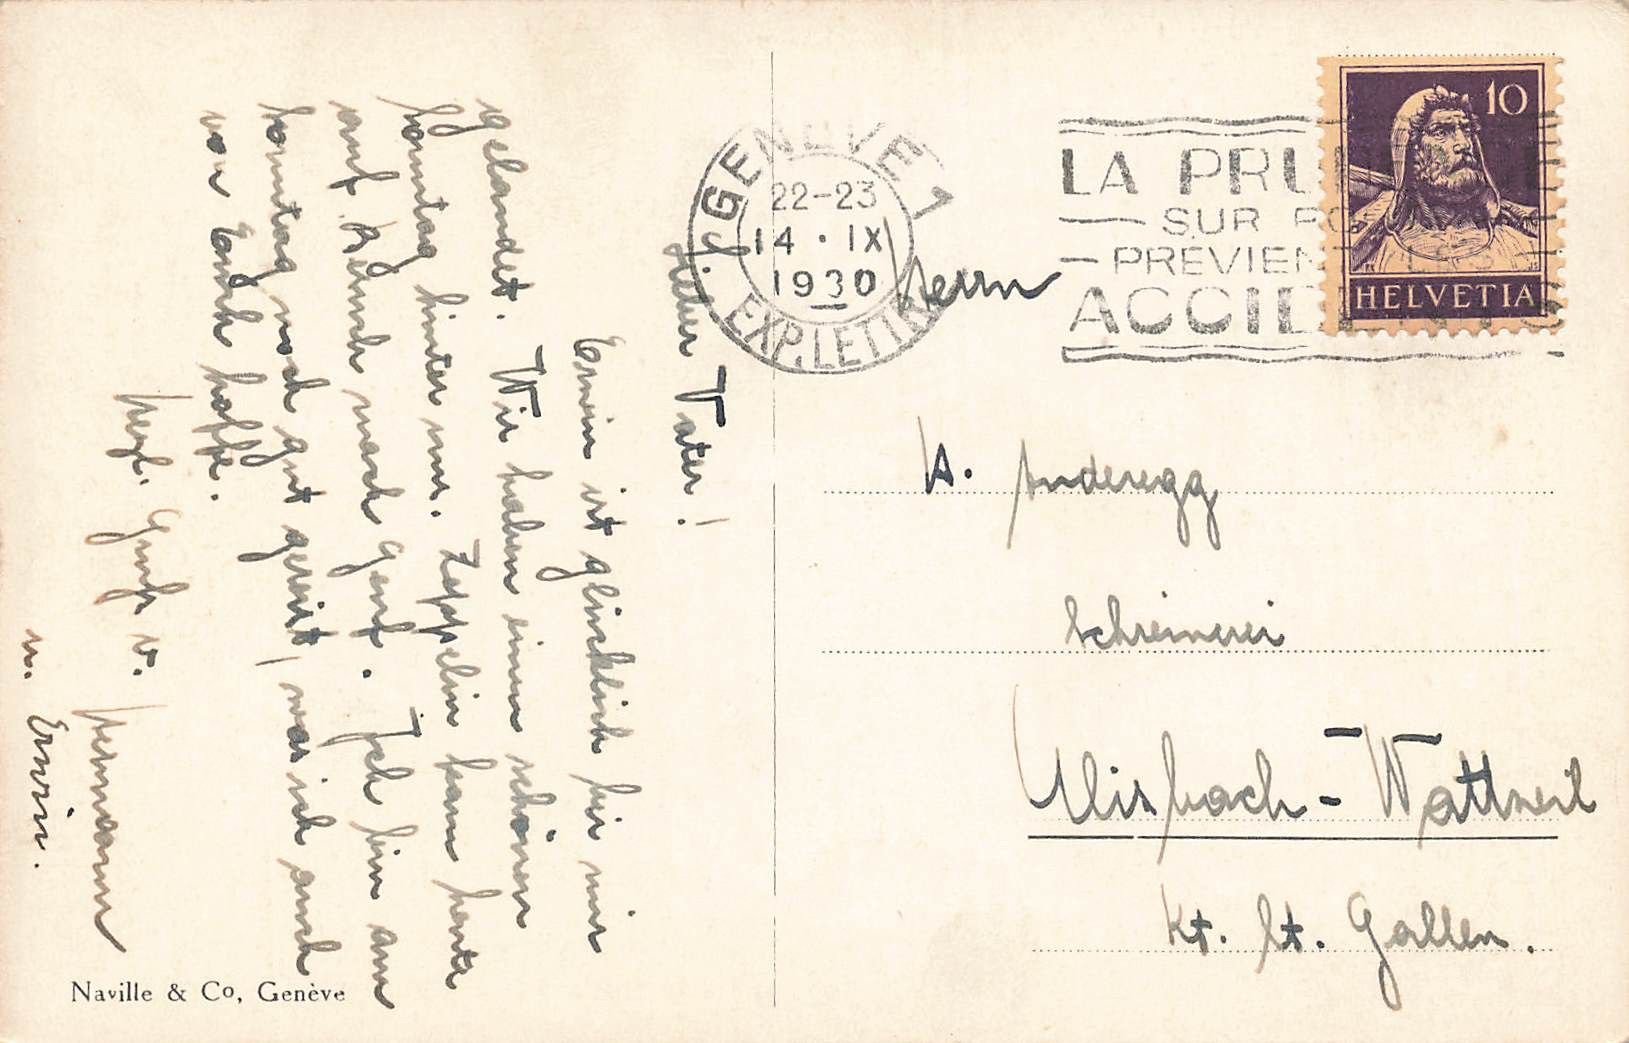 Lieber Vater!
Erwin ist glücklich bei mir
gelandet. Wir haben einen schönen
Sonntag hinter uns. Zeppelin kam heute
auf Besuch nach Genf. Ich bin am
Sonntag noch gut gereist, was ich auch
von Euch hoffe.
Herzl. Grüsse v. Hermann
u. Erwin.
Naville & Co, Genève
GENÈVE 1
22-23
14 · IX
1930
EXP. LETTR
LA PRU
SUR
PREVIEN
ACCID
10
HELVETIA
Herrn
A. Anderegg
Schreinerei
Ulisbach-Wattwil
Kt. St. Gallen.